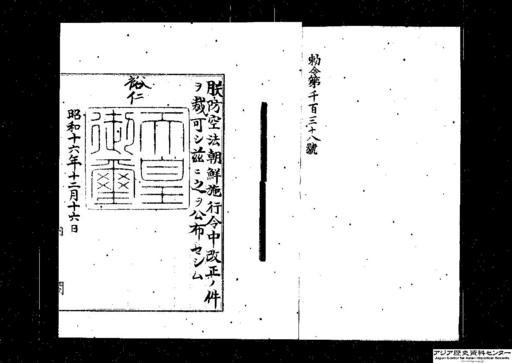 勅令第千百三十八號
朕防空法朝鮮施行令中改正ノ件
ヲ裁可シ茲ニ之ヲ公布セシム
裕仁
天皇
御璽
昭和十六年十二月十六日
アジア歴史資料センター
Japan Center for Asian Historical Records